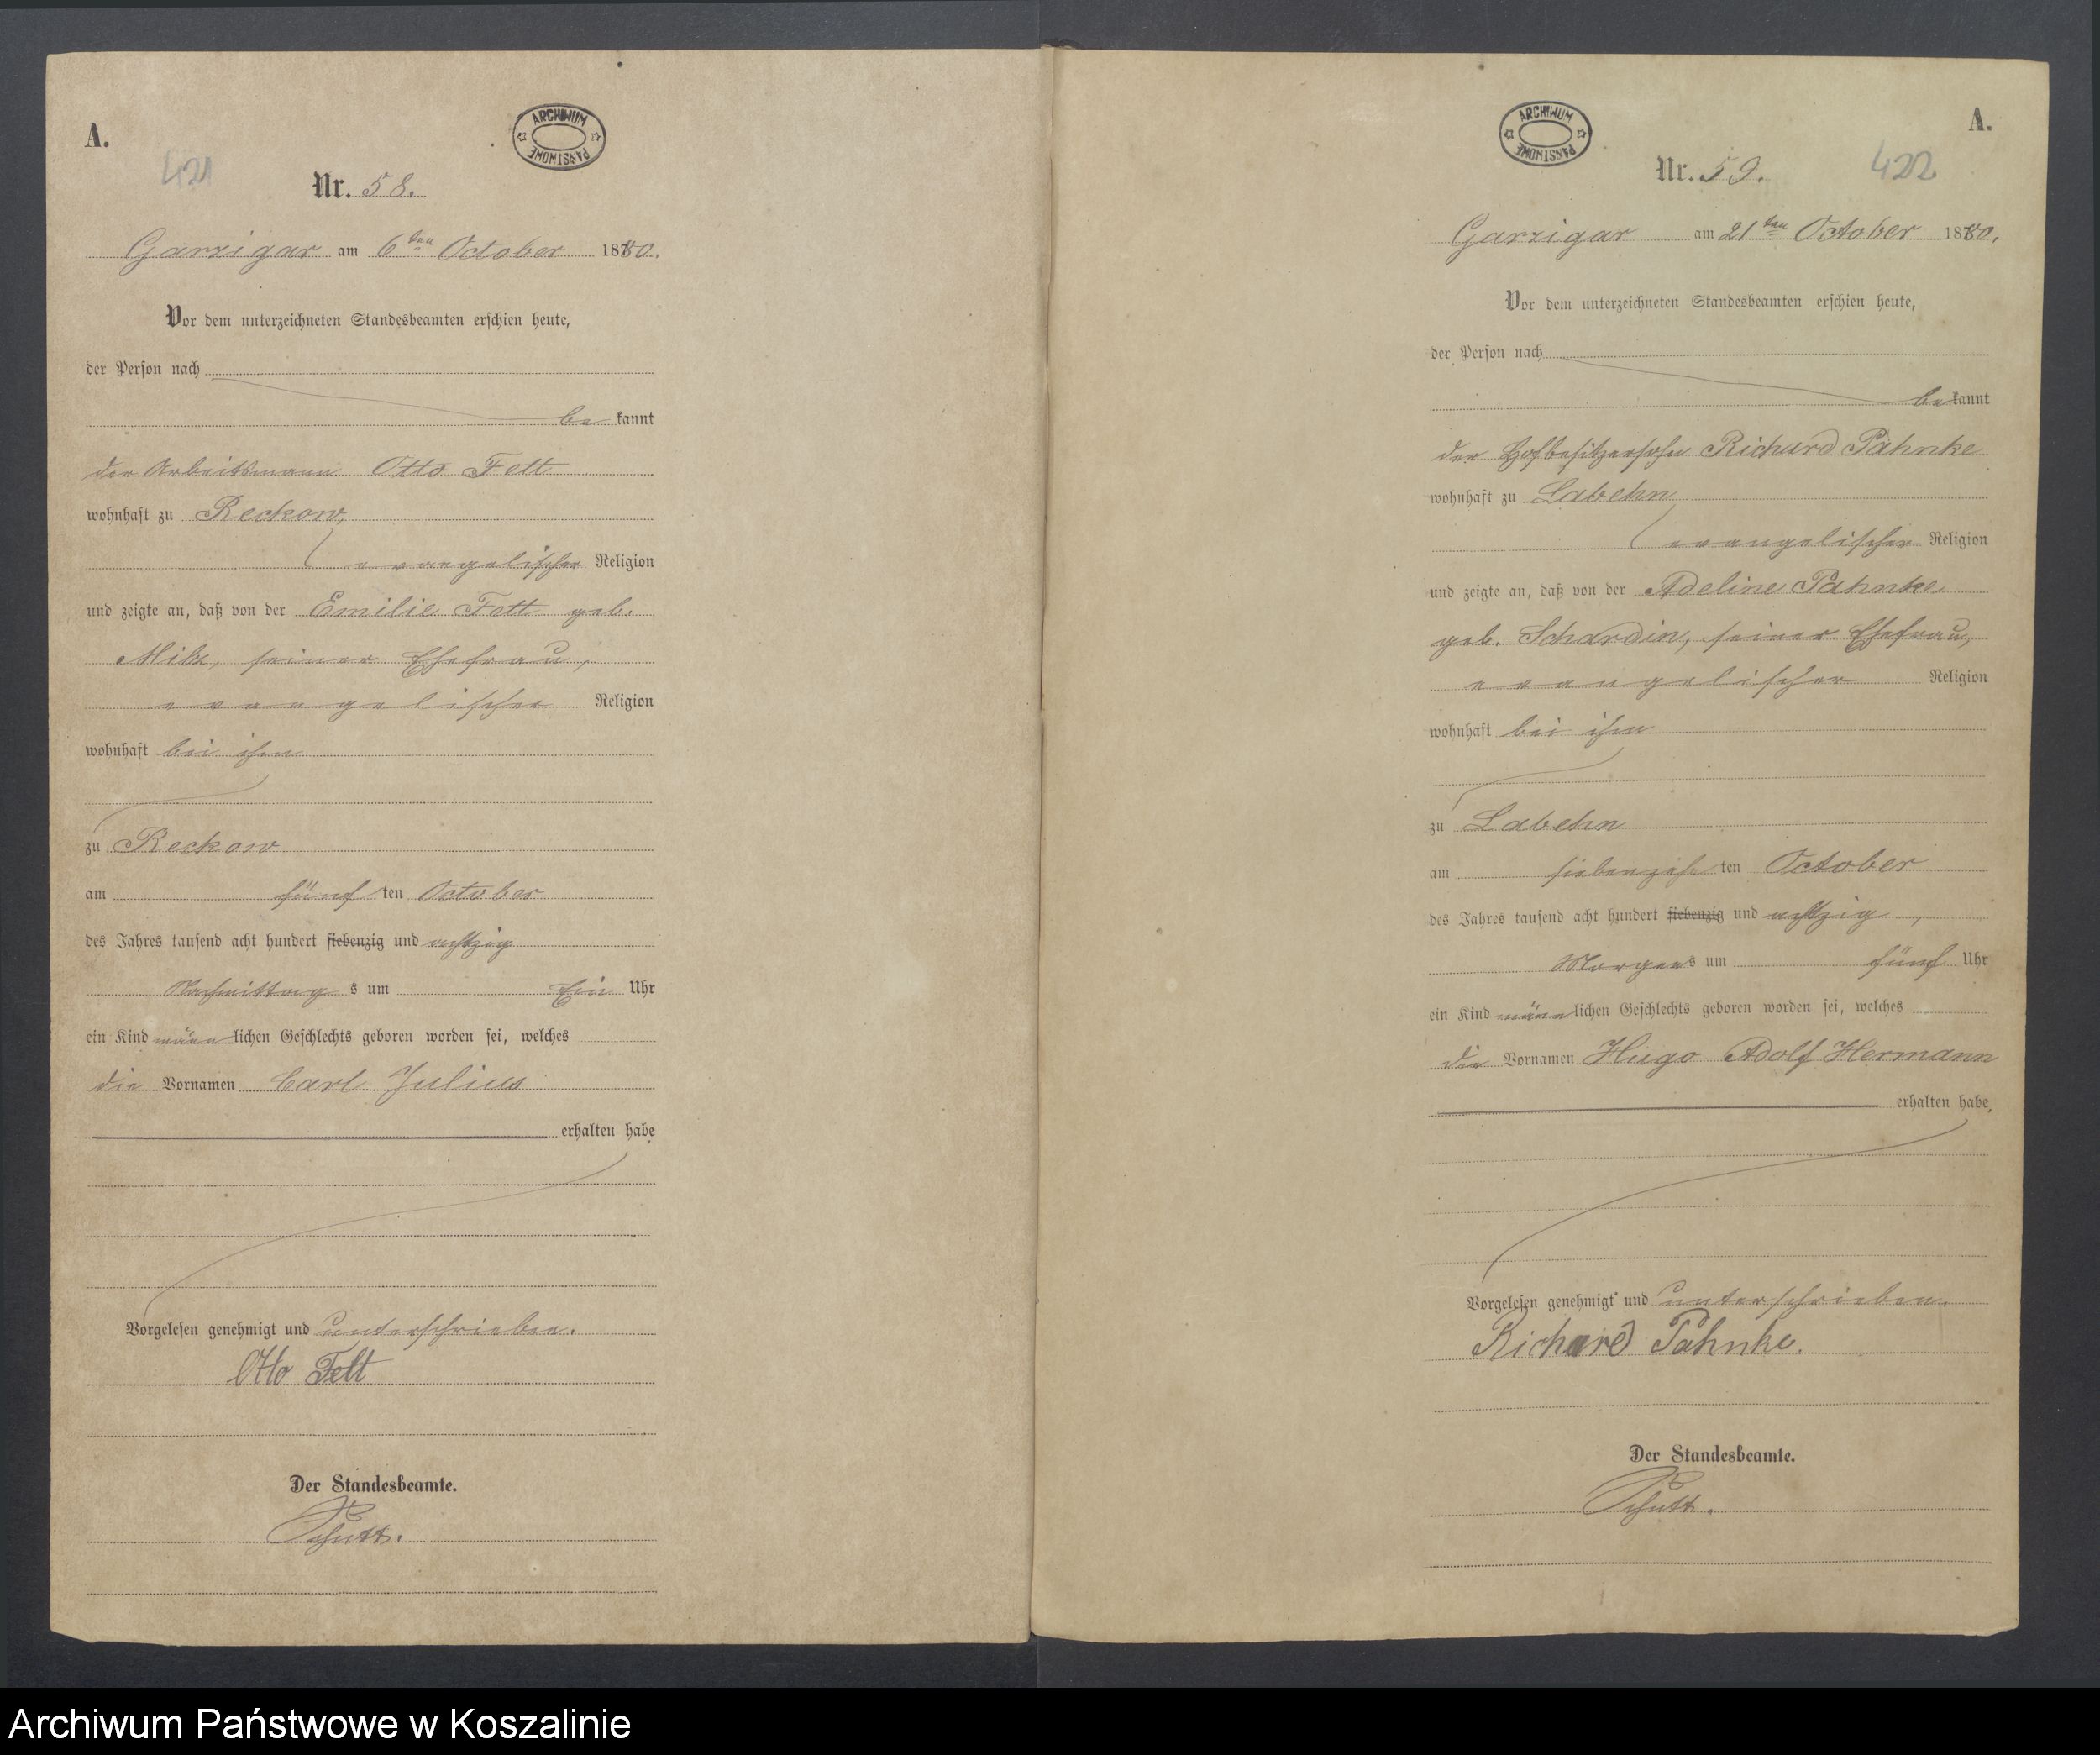 A.
421
ARCHIWUM PAŃSTWOWE
Nr. 58.
Garzigar am 6ten October 1880.
Vor dem unterzeichneten Standesbeamten erschien heute,
der Person nach
bekannt
der Arbeitsmann Otto Fett
wohnhaft zu Reckow,
evangelischer Religion
und zeigte an, daß von der Emilie Fett geb.
Milz, seiner Ehefrau,
evangelischer Religion
wohnhaft bei ihm
zu Reckow
am fünften October
des Jahres tausend acht hundert siebenzig und achtzig
Nachmittags um Ein Uhr
ein Kind männlichen Geschlechts geboren worden sei, welches
die Vornamen Carl Julius
erhalten habe
Vorgelesen genehmigt und unterschrieben.
Otto Fett
Der Standesbeamte.
Schutt.
A.
422
ARCHIWUM PAŃSTWOWE
Nr. 59.
Garzigar am 21ten October 1880.
Vor dem unterzeichneten Standesbeamten erschien heute,
der Person nach
bekannt
der Hofbesitzersohn Richard Pahnke
wohnhaft zu Labehn
evangelischer Religion
und zeigte an, daß von der Adeline Pahnke
geb. Schardin, seiner Ehefrau,
evangelischer Religion
wohnhaft bei ihm
zu Labehn
am siebenzehnten October
des Jahres tausend acht hundert siebenzig und achtzig,
Morgens um fünf Uhr
ein Kind männlichen Geschlechts geboren worden sei, welches
die Vornamen Hugo Adolf Hermann
erhalten habe,
Vorgelesen genehmigt und unterschrieben.
Richard Pahnke.
Der Standesbeamte.
Schutt.
Archiwum Państwowe w Koszalinie